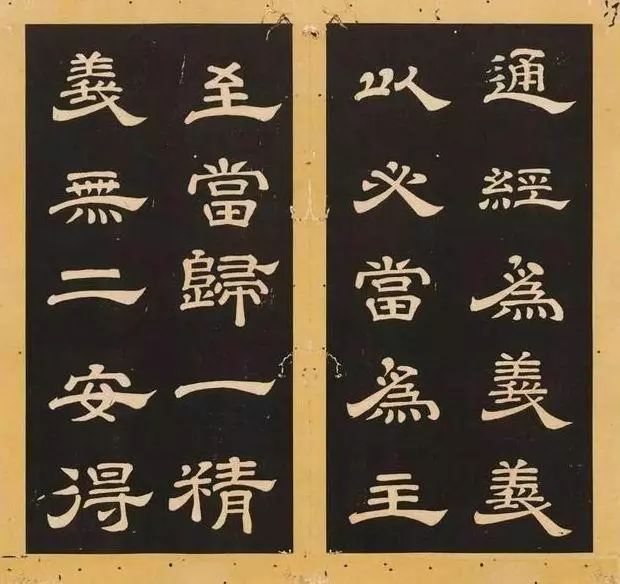 通經爲義義
以必當爲主
至當歸一精
義無二安得